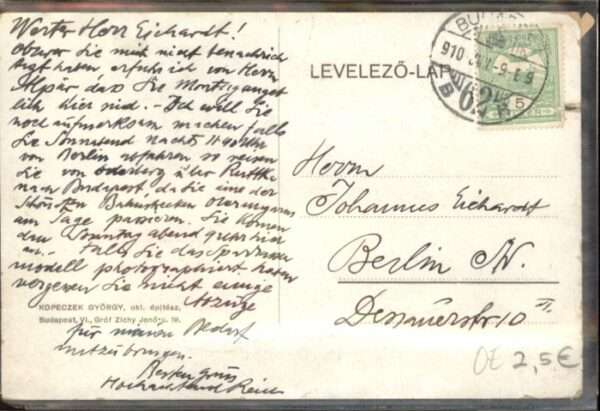 Werter Herr Eichardt!
Obzwar Sie mich nicht benachrich
tigt haben, erfuhr ich von Herrn
Alpár, das Sie Montag
hier sind. – Ich will Sie
noch aufmerksam machen falls
Sie Sonnabend nachts 11.40 Uhr
von Berlin abfahren so reisen
Sie von Oderberg über Ruttka
nach Budapest, da Sie eine der
schönsten Bahnstrecken Oberungarns
am Tage passieren. Sie können
den Sonntag abend hier
Falls Sie das
modell photographiert haben
vergessen Sie nicht einige
Abzüge
KOPECZEK GYÖRGY, okl. építész,
Budapest, VI., Gróf Zichy Jenő-u.
für meinen Bedarf
mitzubringen.
Besten Gruss
LEVELEZŐ-LAP
BUDA
910
5
Herrn
Johannes Eichardt
Berlin W.
Dessauerstr 10 III.
2,5€